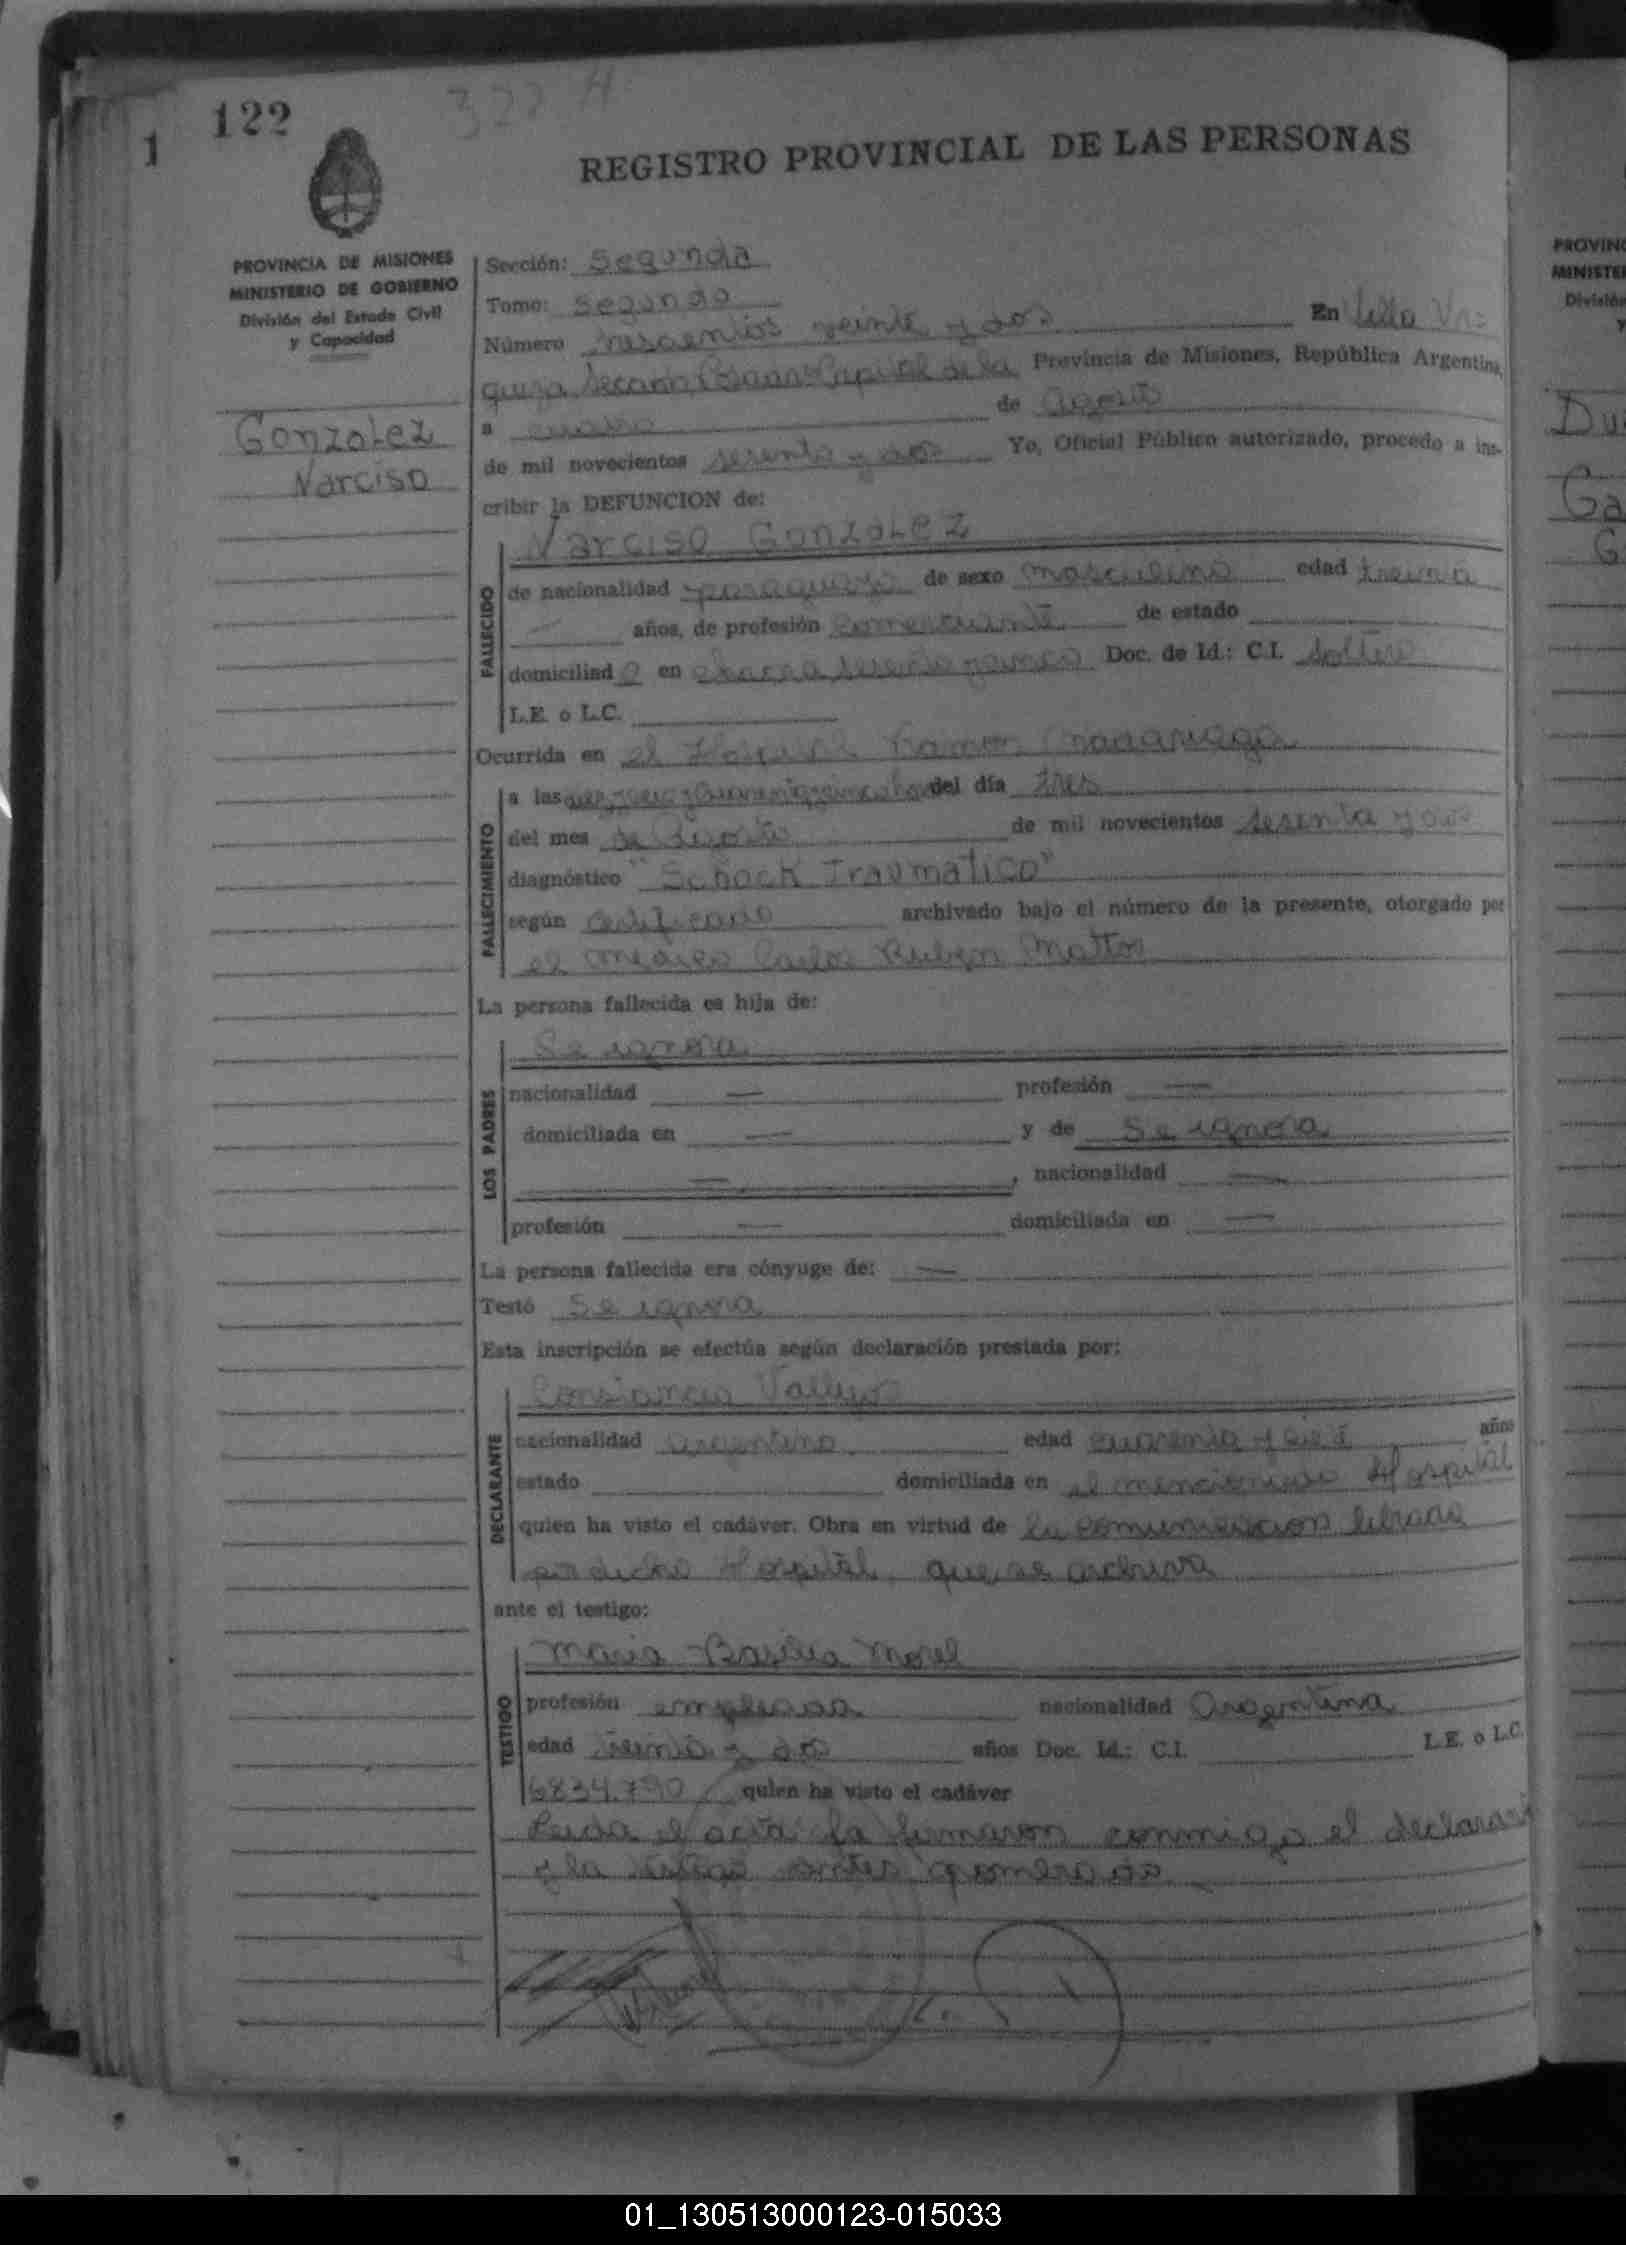 122
322 H
1
REGISTRO PROVINCIAL DE LAS PERSONAS
PROVINCIA DE MISIONES
MINISTERIO DE GOBIERNO
División del Estado Civil
y Capacidad
Gonzalez
Narciso
Sección: Segunda
Tomo: Segundo
Número trescientos veinte y dos En Villa Ur=
quiza Capital de la Provincia de Misiones, República Argentina,
a cuatro de Agosto
de mil novecientos sesenta y dos Yo, Oficial Público autorizado, procedo a ins-
cribir la DEFUNCION de:
Narciso Gonzalez
FALLECIDO
de nacionalidad paraguayo de sexo masculino edad treinta
— años, de profesión comerciante de estado
domiciliado en chacra Doc. de Id.: C.I. soltero
L.E. o L.C.
Ocurrida en el Hospital Ramon Madariaga
FALLECIMIENTO
a las del día tres
del mes de Agosto de mil novecientos sesenta y dos
diagnóstico "Schock Traumatico"
según certificado archivado bajo el número de la presente, otorgado por
el médico Carlos Ruben Mattos
La persona fallecida es hija de:
Se ignora
LOS PADRES
nacionalidad — profesión —
domiciliada en — y de Se ignora
—, nacionalidad —
profesión — domiciliada en —
La persona fallecida era cónyuge de: —
Testó Se ignora
Esta inscripción se efectúa según declaración prestada por:
Constancio Vallejos
DECLARANTE
nacionalidad argentino edad cuarenta y siete años
estado domiciliada en el mencionado Hospital
quien ha visto el cadáver. Obra en virtud de la comunicacion librada
por dicho Hospital, que se archiva
ante el testigo:
Maria Basilia Morel
TESTIGO
profesión empleada nacionalidad Argentina
edad treinta y dos años Doc. Id.: C.I. L.E. o L.C.
6834.790 quien ha visto el cadáver
Leida el acta la firmaron conmigo el declarant
y la testigo antes
PROVINC
MINISTER
División
y
Du
Ga
G
01_130513000123-015033